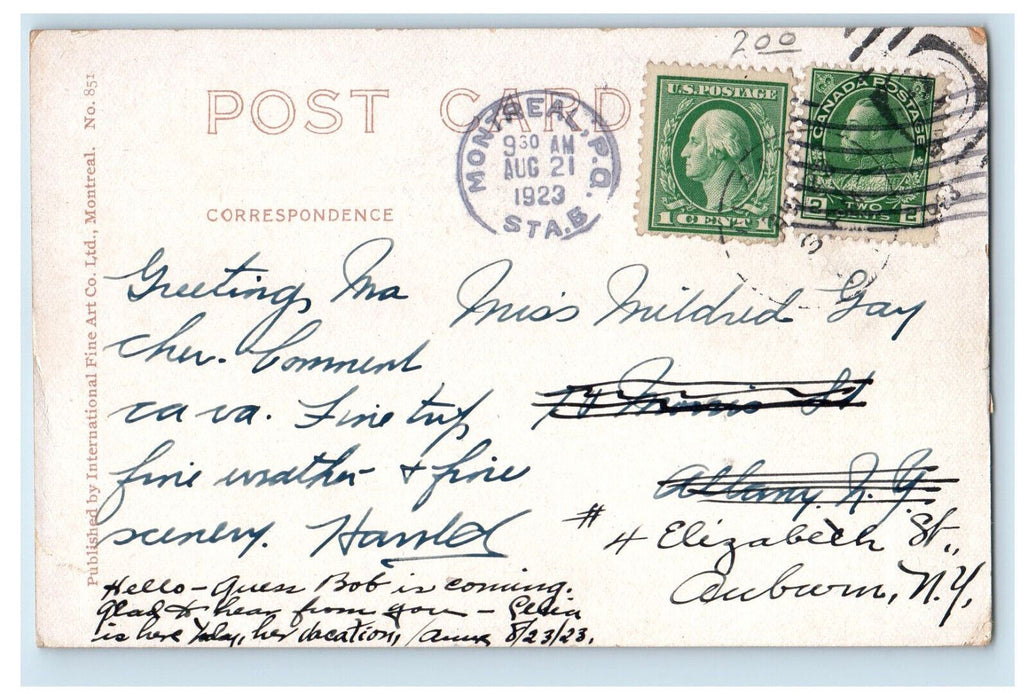 200
POST CARD
U.S. POSTAGE
1 CENT 1
CANADA POSTAGE
2 TWO CENTS 2
MONTREAL, P.Q.
9 30 AM
AUG 21
1923
STA. B.
CORRESPONDENCE
Published by International Fine Art Co. Ltd., Montreal. No. 851
Greetings Ma
Cher. Comment
ca va. Fine trip
fine weather & fine
scenery. Harold
Miss Mildred Gay
Morris St
Albany N.Y.
# 4 Elizabeth St.,
Auburn, N.Y.
Hello - Guess Bob is coming.
Glad to hear from you -
is here today, her vacation, 8/23/23.